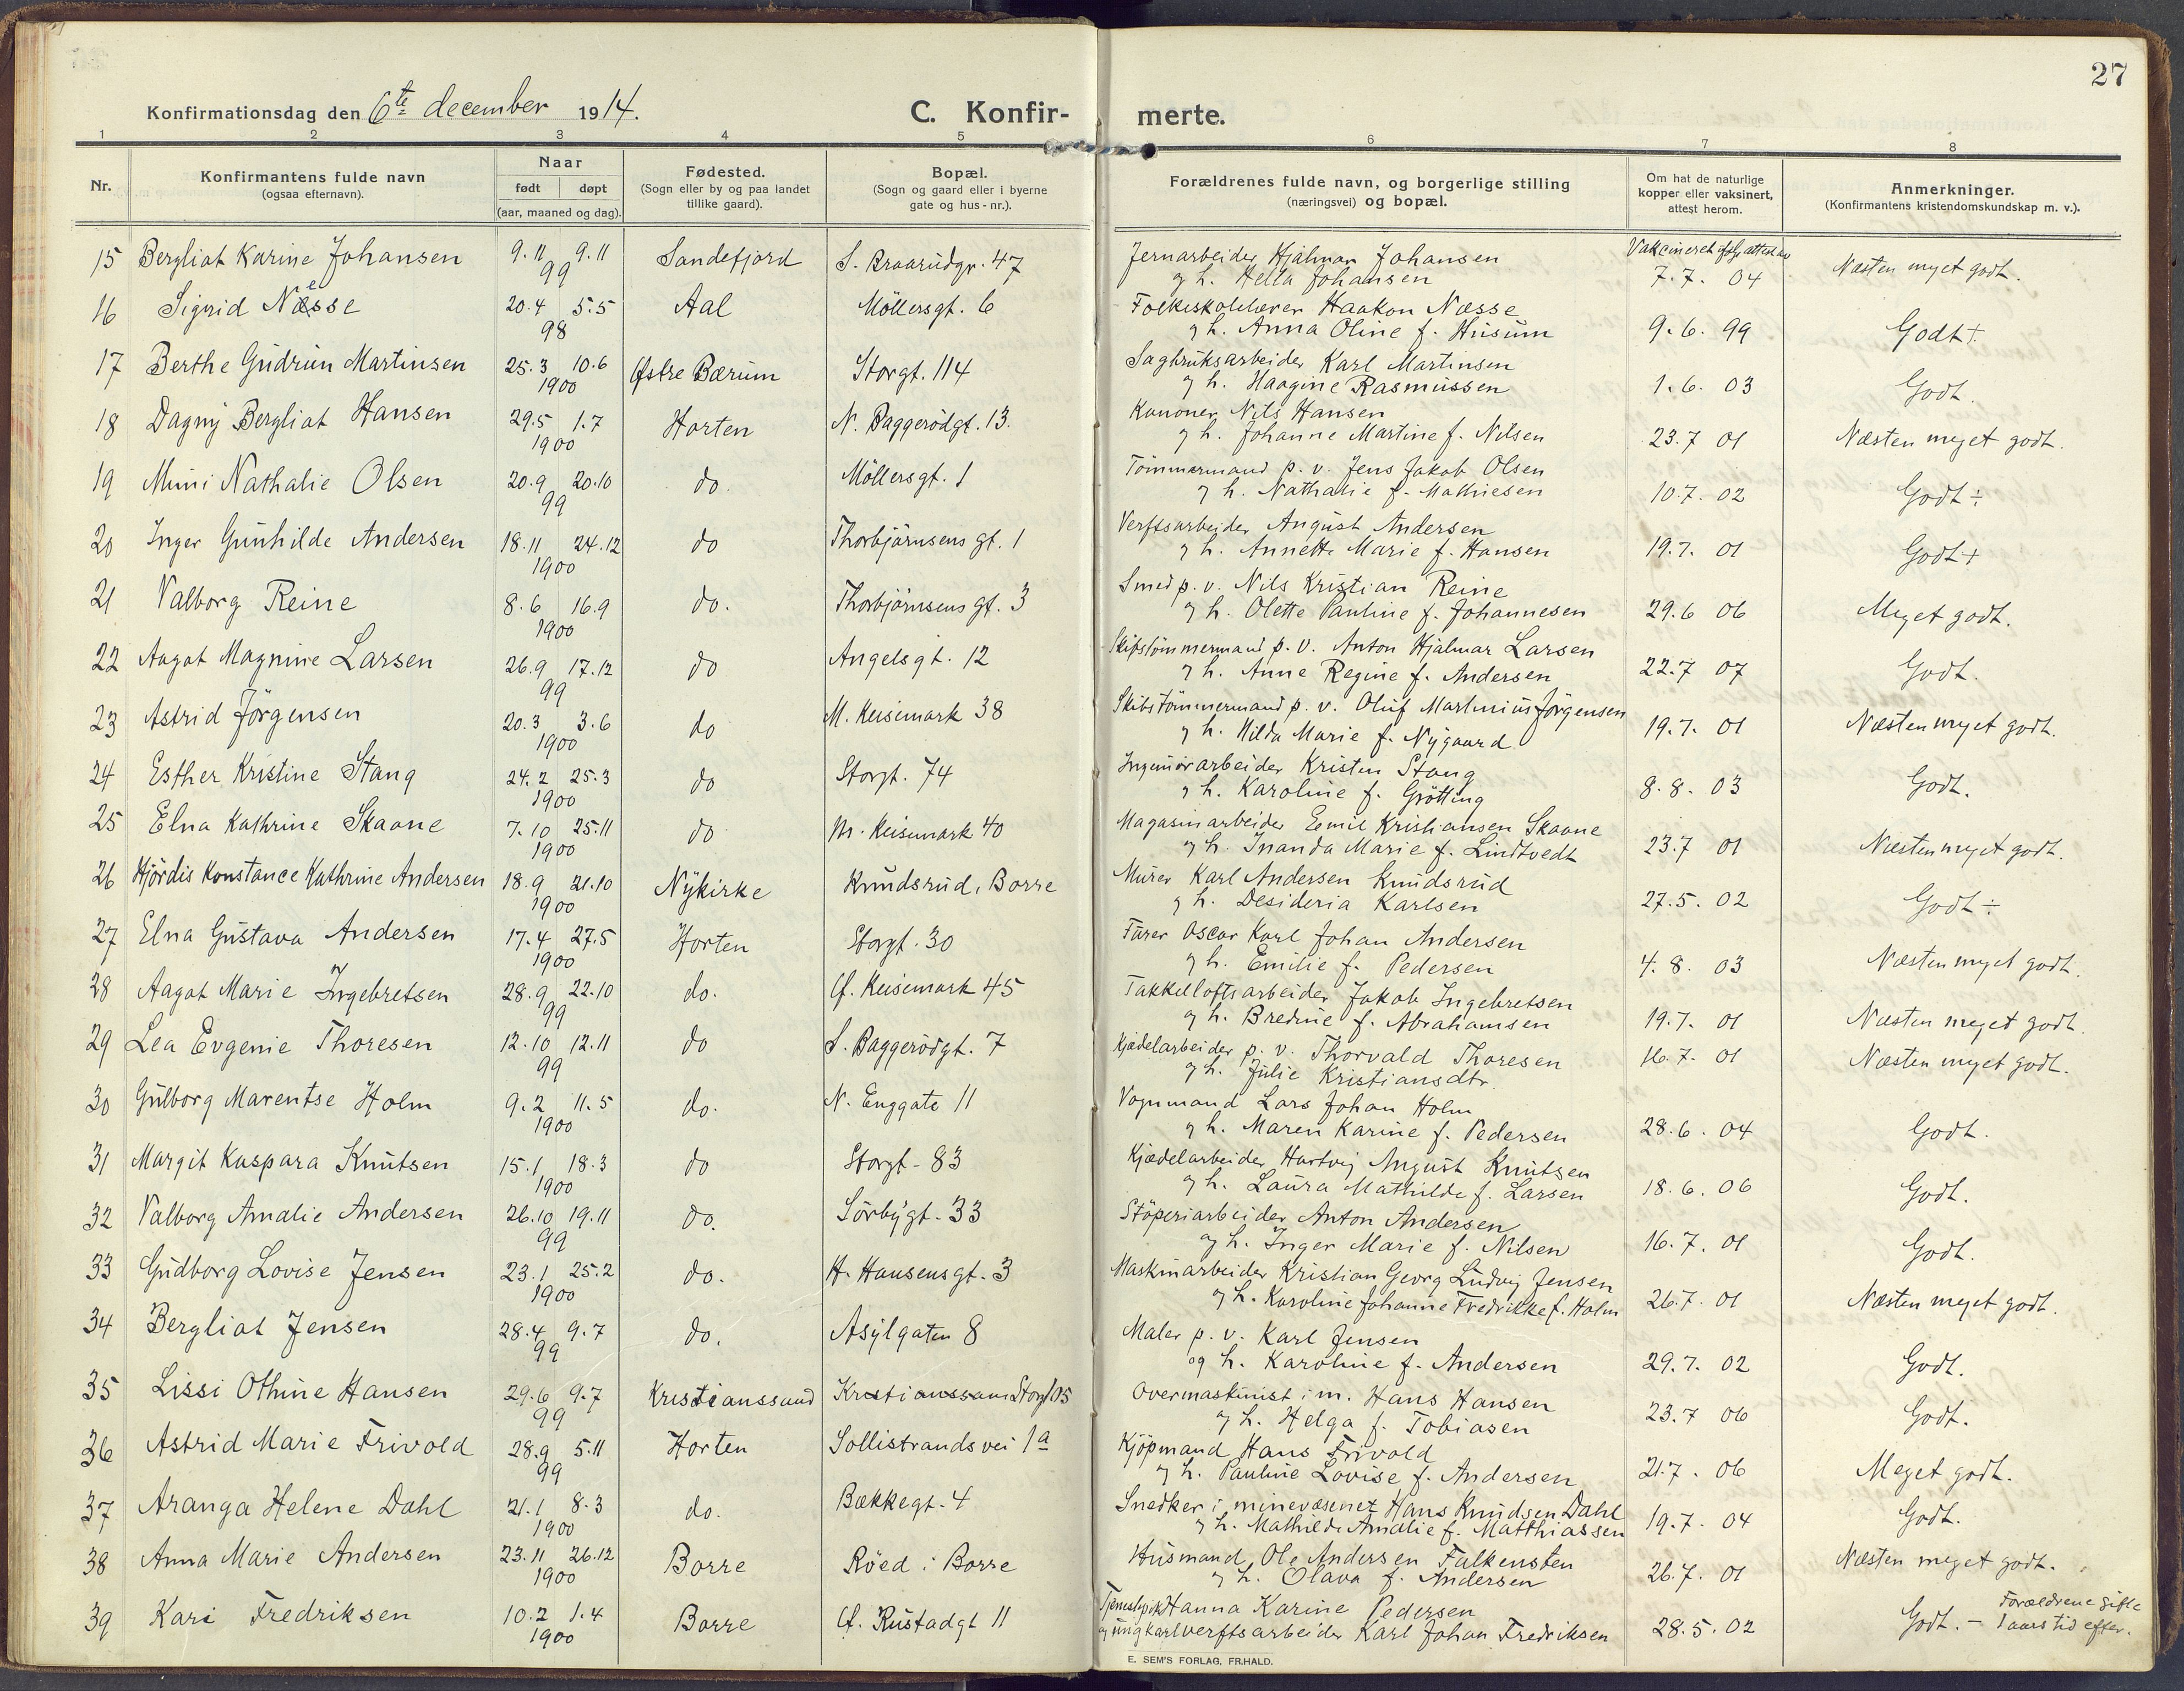 27
Konfirmationsdag den 6te december 1914.
C. Konfir-merte.
1 2 3 4 5 6 7 8
Nr.
Konfirmantens fulde navn
(ogsaa efternavn).
Naar
født døpt
(aar, maaned og dag).
Fødested.
(Sogn eller by og paa landet
tillike gaard).
Bopæl.
(Sogn og gaard eller i byerne
gate og hus-nr.).
Forældrenes fulde navn, og borgerlige stilling
(næringsvei) og bopæl.
Om hat de naturlige
kopper eller vaksinert,
attest herom.
Anmerkninger.
(Konfirmantens kristendomskundskap m. v.).
15 Bergliot Karine Johansen 9.11 9.11 99 Sandefjord S. Braarudgr. 47 Jernarbeider Hjalmar Johansen
og h. Hella Johansen Vakcineret ifølg attest av 7.7. 04 Næsten meget godt.
16 Sigrid Næsse 20.4 5.5 98 Aal Möllersgt. 6 Folkeskolelærer Haakon Næsse
og h. Anna Oline f. Husum 9.6. 99 Godt+
17 Berthe Gudrun Martinsen 25.3 10.6 1900 Østre Bærum Storgt. 114 Sagbruksarbeider Karl Martinsen
og h. Haagine Rasmussen 1.6. 03 Godt.
18 Dagny Bergliot Hansen 29.5 1.7 1900 Horten N. Baggerödgt. 13. Kanoner Nils Hansen
og h. Johanne Martine f. Nilsen 23.7 01 Næsten meget godt.
19 Mimi Nathalie Olsen 20.9 20.10 99 do. Möllersgt. 1 Tömmermand p. v. Jens Jakob Olsen
og h. Nathalie f. Mathiesen 10.7. 02 Godt ÷
20 Inger Gunhilde Andersen 18.11 24.12 1900 do Thorbjörnsens gt. 1 Verftsarbeider August Andersen
og h. Annette Marie f. Hansen 19.7. 01 Godt+
21 Valborg Reine 8.6 16.9 1900 do. Thorbjörnsens gt. 3 Smed p. v. Nils Kristian Reine
og h. Olette Pauline f. Johannesen 29.6 06 Meget godt.
22 Aagot Magnine Larsen 26.9 17.12 99 do Angelsgt. 12 Skibstömmermand p. v. Anton Hjalmar Larsen
og h. Anne Regine f. Andersen 22.7 07 Godt.
23 Astrid Jörgensen 20.3 3.6 1900 do M. Keisemark 38 Skibstömmermand p. v. Oluf Martinius Jörgensen
og h. Hilda Marie f. Nygaard 19.7. 01 Næsten meget godt.
24 Esther Kristine Stang 24.2 25.3 1900 do Storgt. 74 Ingeniörarbeider Kristen Stang
og h. Karoline f. Grötting 8.8. 03 Godt.
25 Elna Kathrine Skaane 7.10 25.11 1900 do M. Keisemark 40 Magasinarbeider Emil Kristiansen Skaane
og h. Inanda Marie f. Lindtvedt 23.7 01 Næsten meget godt.
26 Hjördis Konstance Kathrine Andersen 18.9 21.10 1900 Nykirke Knudsrud, Borre Murer Karl Andersen Knudsrud
og h. Desideria Karlsen 27.5. 02 Godt ÷
27 Elna Gustava Andersen 17.4 27.5 1900 Horten Storgt. 30 Furer Oscar Karl Johan Andersen
og h. Emilie f. Pedersen 4.8. 03 Næsten meget godt.
28 Aagot Marie Ingebretsen 28.9 22.10 99 do. Ö. Keisemark 45 Takkelloftsarbeider Jakob Ingebretsen
og h. Bredine f. Abrahamsen 19.7. 01 Næsten meget godt.
29 Lea Evgenie Thoresen 12.10 12.11 99 do S. Baggerödgt. 7 Kjedelarbeider p. v. Thorvald Thoresen
og h. Julie Kristiansdtr. 16.7. 01 Næsten meget godt.
30 Gulborg Marentse Holm 9.2 11.5 1900 do. N. Enggate 11 Vognmand Lars Johan Holm
og h. Maren Karine f. Pedersen 28.6. 04 Godt.
31 Margit Kaspara Knutsen 15.1 18.3 1900 do Storgt - 83 Kjædelarbeider Hartvig August Knutsen
og h. Laura Mathilde f. Larsen 18.6. 06 Godt.
32 Valborg Amalie Andersen 26.10 19.11 99 do. Sörbygt. 33 Stöperiarbeider Anton Andersen
og h. Inger Marie f. Nilsen 16.7. 01 Godt.
33 Gudborg Lovise Jensen 23.1 25.2 1900 do. H. Hansensgt. 3 Maskinarbeider Kristian Georg Ludvig Jensen
og h. Karoline Johanne Fredrikke f. Holm 26.7. 01 Næsten meget godt.
34 Bergliot Jensen 28.4 9.7 99 do. Asylgaten 8 Maler p. v. Karl Jensen
og h. Karoline f. Andersen 29.7. 02 Godt.
35 Lissi Othine Hansen 29.6 9.7 99 Kristianssund Kristianssun Storgt 105 Overmaskinist i m. Hans Hansen
og h. Helga f. Tobiasen 23.7 06 Godt.
36 Astrid Marie Frivold 28.9 5.11 99 Horten Sollistrandsvei 1a Kjöpmand Hans Frivold
og h. Pauline Lovise f. Andersen 21.7. 06 Meget godt.
37 Aranga Helene Dahl 21.1 8.3 1900 do. Bækkegt. 4 Snedker i minevæsenet Hans Knudsen Dahl
og h. Mathilde Amalie f. Matthiassen 19.7. 04 Godt.
38 Anna Marie Andersen 23.11 26.12 1900 Borre Röed i Borre Husmand Ole Andersen Falkensten
og h. Olava f. Andersen 26.7. 01 Næsten meget godt.
39 Kari Fredriksen 10.2 1.4 1900 Borre Ö. Rustadgt 11 Tjenestepik Hanna Karine Pedersen
og ungkarl verftsarbeider Karl Johan Fredriksen 28.5. 02 Godt. - Forældrene gifte
1 aars tid efter.
E. SEM'S FORLAG, FR.HALD.